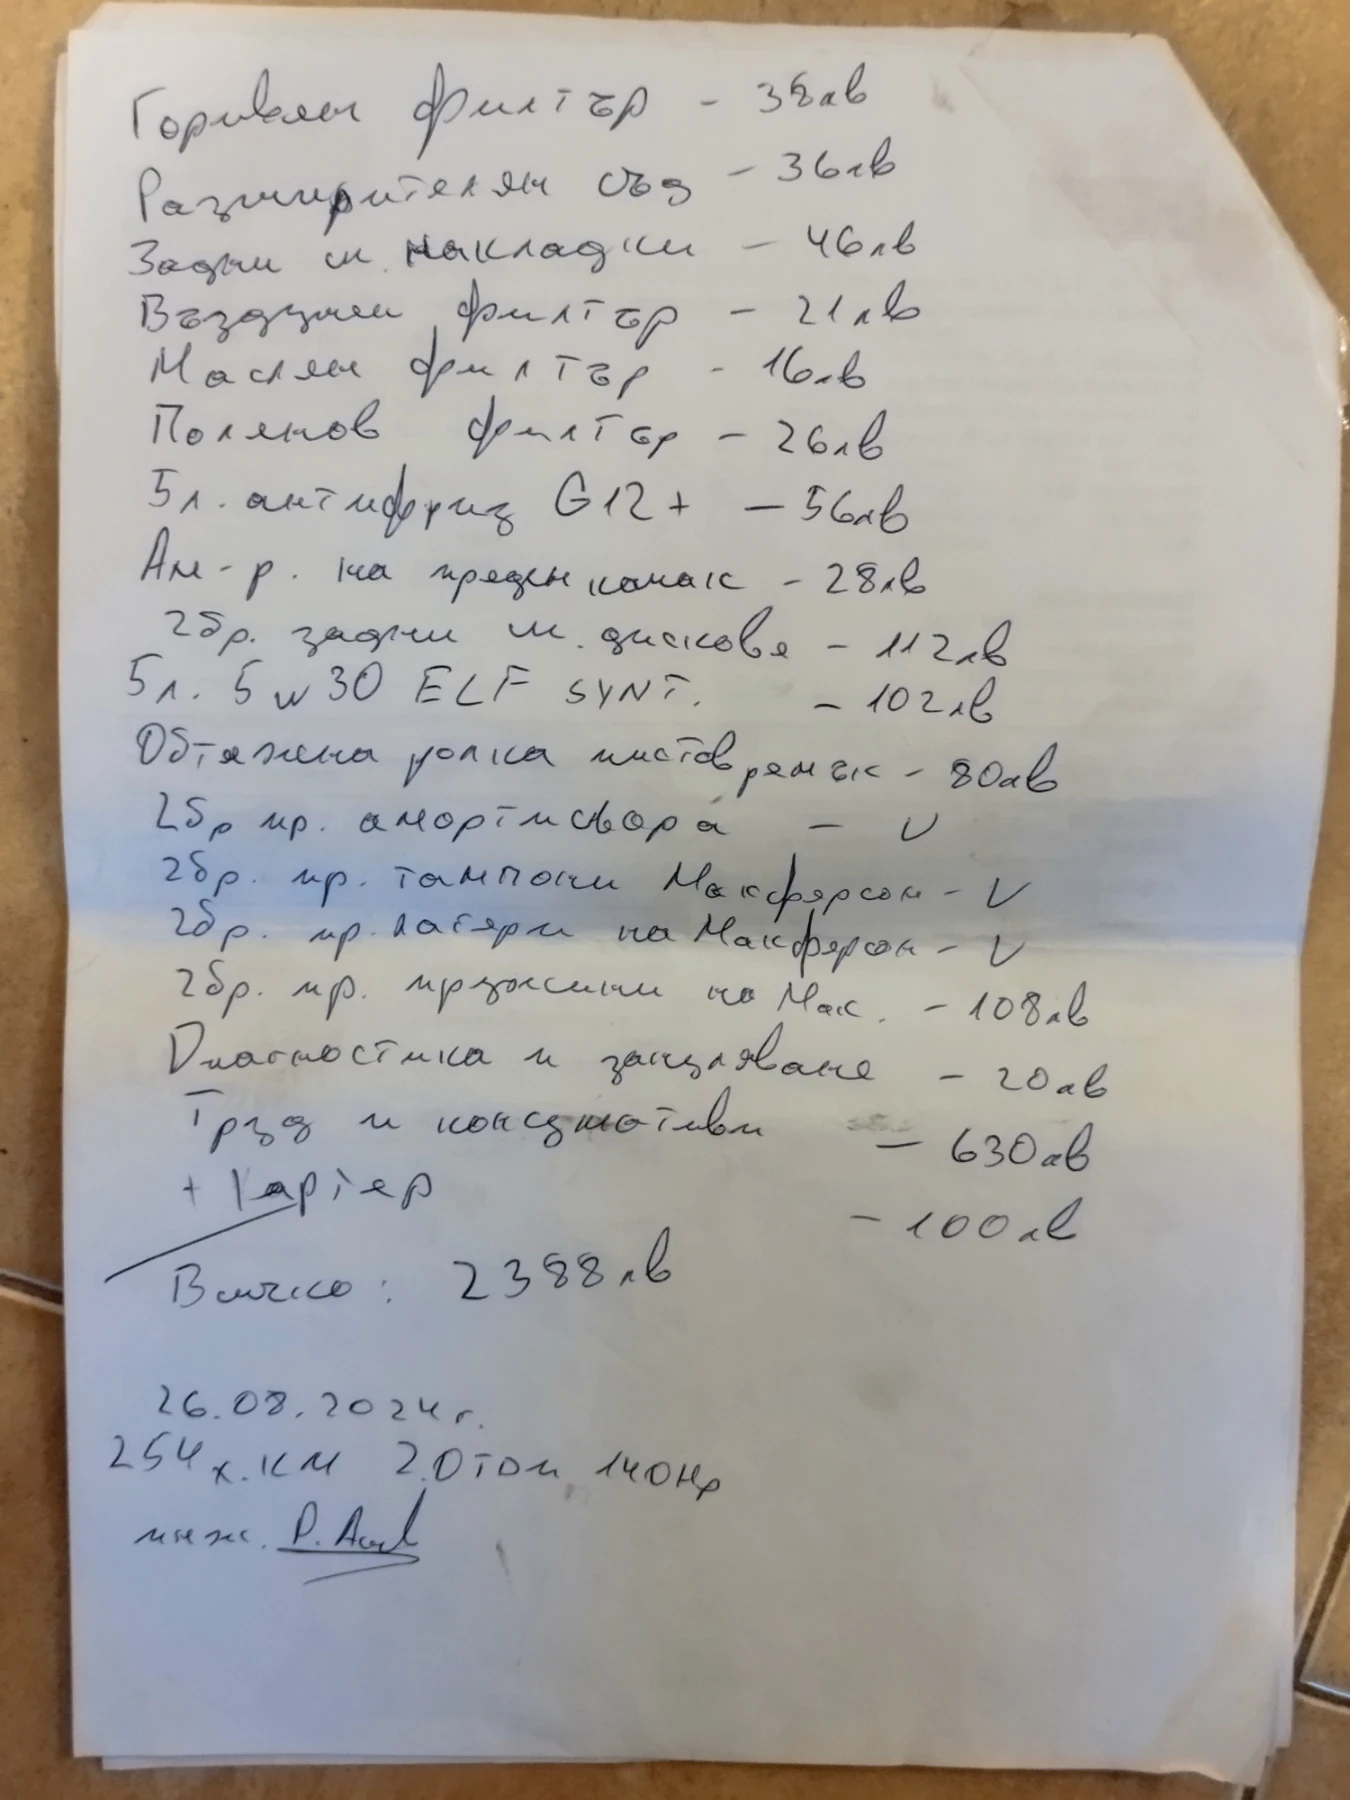 Горивен филтър - 38лв
Разширителен съд - 36лв
Задни н. накладки - 46лв
Въздушен филтър - 21лв
Маслен филтър - 16лв
Поленов филтър - 26лв
5л. антифриз G12+ - 56лв
Ам-р. на преден капак - 28лв
2бр. задни н. дискове - 112лв
5л. 5w30 ELF SYNT. - 102лв
Обтяжна ролка пистов ремък - 80лв
2бр пр. амортисьора - V
2бр. пр. тампони Макферсон - V
2бр. пр. лагери на Макферсон - V
2бр. пр. пружини на Мак. - 108лв
Диагностика и зануляване - 20лв
Труд и консумативи - 630лв
+ Картер - 100лв
Всичко: 2388лв
26.08.2024г.
254х.км 2.0TDI 140Hp
инж. Р.